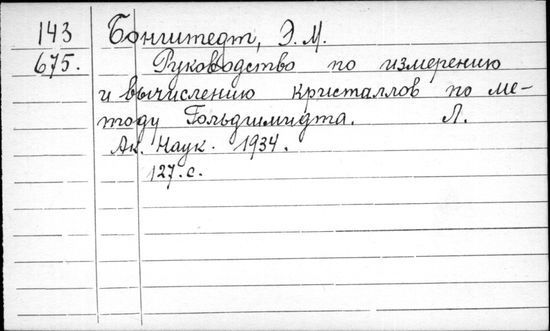 143 Бонштедт, Э.М.
675. Руководство по измерению
и вычислению кристаллов по ме-
тоду Гольдшмидта. Л.
Ак. Наук. 1934.
127.с.